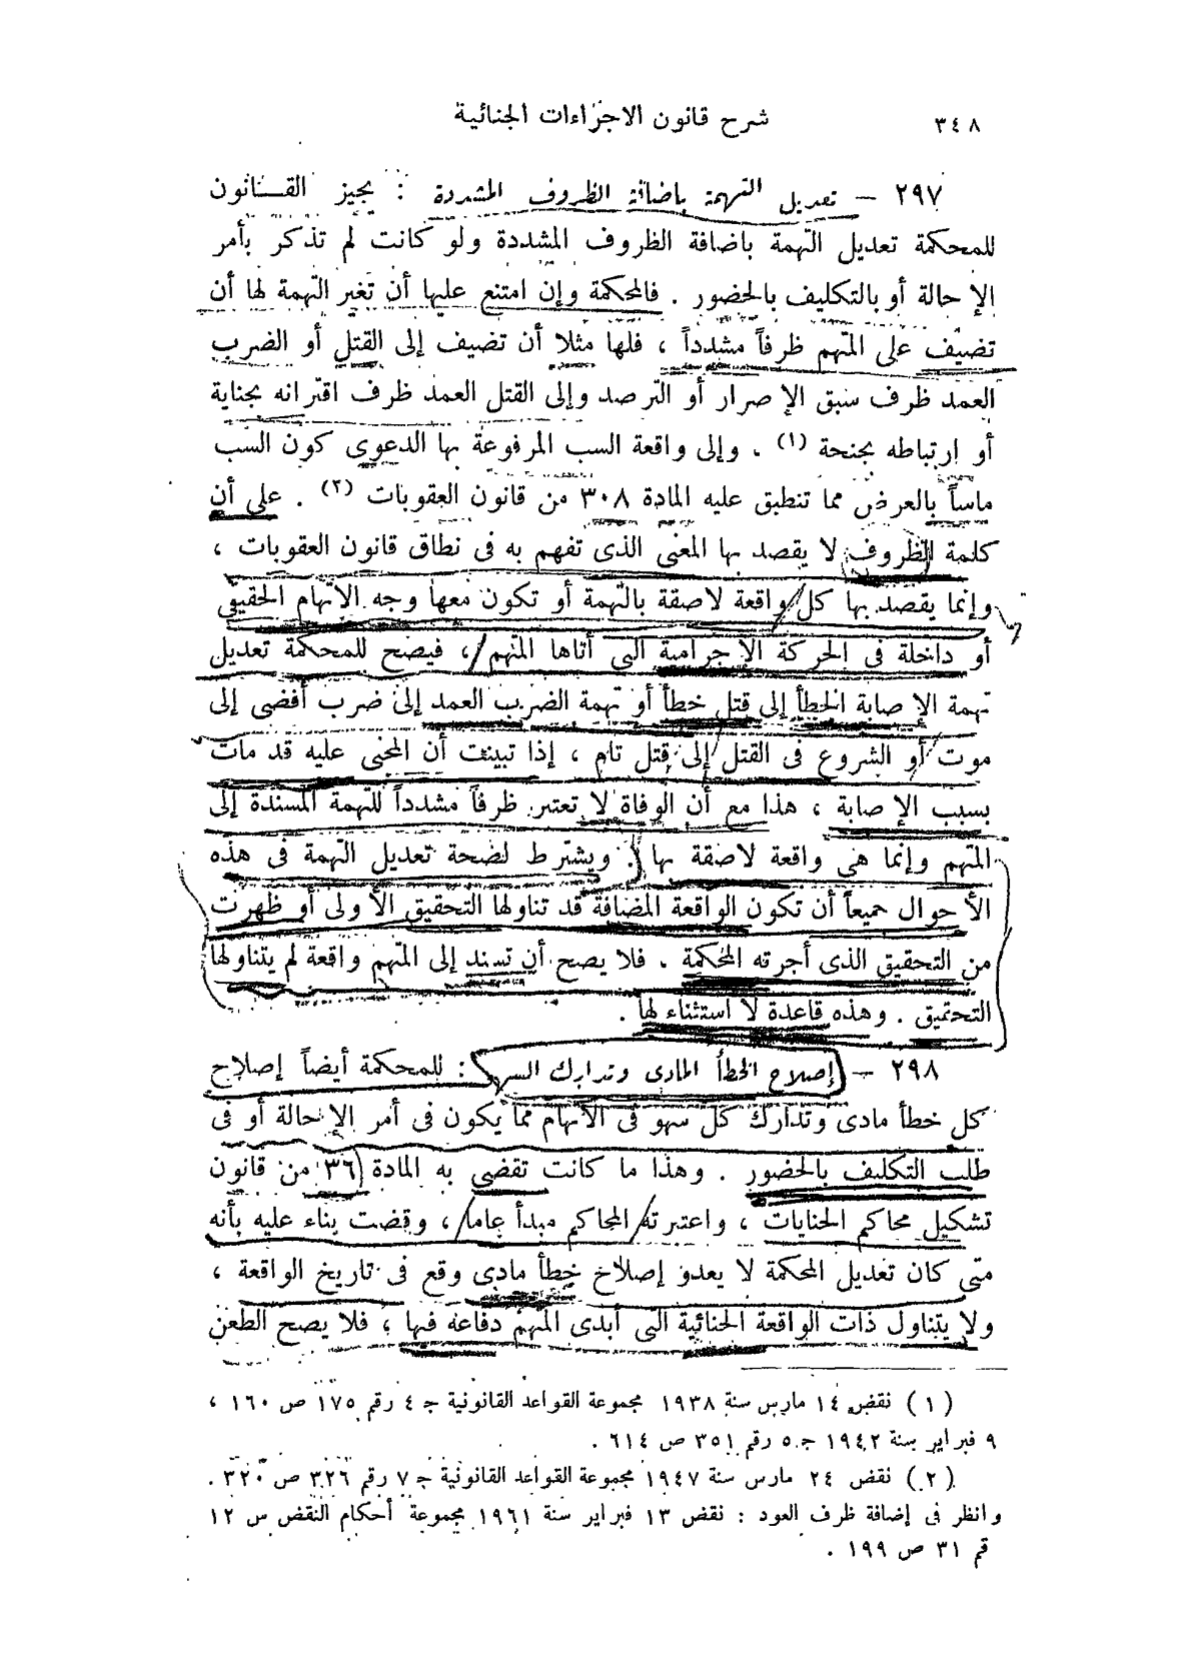 ٣٤٨ شرح قانون الاجراءات الجنائية
٢٩٧ — تعديل التهمة باضافة الظروف المشددة : يجيز القانون
للمحكمة تعديل التهمة باضافة الظروف المشددة ولو كانت لم تذكر بأمر
الإحالة أو بالتكليف بالحضور . فالمحكمة وإن امتنع عليها أن تغير التهمة لها أن
تضيف على المتهم ظرفاً مشدداً ، فلها مثلا أن تضيف إلى القتل أو الضرب
العمد ظرف سبق الإصرار أو الترصد وإلى القتل العمد ظرف اقترانه بجناية
أو ارتباطه بجنحة (١) . وإلى واقعة السب المرفوعة بها الدعوى كون السب
ماساً بالعرض مما تنطبق عليه المادة ٣٠٨ من قانون العقوبات (٢) . على أن
كلمة الظروف لا يقصد بها المعنى الذى تفهم به فى نطاق قانون العقوبات ،
وإنما يقصد بها كل واقعة لاصقة بالتهمة أو تكون معها وجه الاتهام الحقيقى
أو داخلة فى الحركة الإجرامية التى أتاها المتهم ، فيصح للمحكمة تعديل
تهمة الإصابة الخطأ إلى قتل خطأ أو تهمة الضرب العمد إلى ضرب أفضى إلى
موت أو الشروع فى القتل إلى قتل تام ، إذا تبينت أن المجنى عليه قد مات
بسبب الإصابة ، هذا مع أن الوفاة لا تعتبر ظرفاً مشدداً للتهمة المسندة إلى
المتهم وإنما هى واقعة لاصقة بها . ويشترط لصحة تعديل التهمة فى هذه
الأحوال جميعاً أن تكون الواقعة المضافة قد تناولها التحقيق الأولى أو ظهرت
من التحقيق الذى أجرته المحكمة . فلا يصح أن تسند إلى المتهم واقعة لم يتناولها
التحقيق . وهذه قاعدة لا استثناء لها .
٢٩٨ — إصلاح الخطأ المادى وتدارك السهو : للمحكمة أيضاً إصلاح
كل خطأ مادى وتدارك كل سهو فى الاتهام مما يكون فى أمر الإحالة أو فى
طلب التكليف بالحضور . وهذا ما كانت تقضى به المادة ٣٦ من قانون
تشكيل محاكم الجنايات ، واعتبرته المحاكم مبدأ عاما ، وقضت بناء عليه بأنه
متى كان تعديل المحكمة لا يعدو إصلاح خطأ مادى وقع فى تاريخ الواقعة ،
ولا يتناول ذات الواقعة الجنائية التى أبدى المتهم دفاعه فيها ، فلا يصح الطعن
(١) نقض ١٤ مارس سنة ١٩٣٨ مجموعة القواعد القانونية جـ ٤ رقم ١٧٥ ص ١٦٠ ،
٩ فبراير سنة ١٩٤٢ جـ ٥ رقم ٣٥١ ص ٦١٤ .
(٢) نقض ٢٤ مارس سنة ١٩٤٧ مجموعة القواعد القانونية جـ ٧ رقم ٣٢٦ ص ٣٢٠ .
وانظر فى إضافة ظرف العود : نقض ١٣ فبراير سنة ١٩٦١ مجموعة أحكام النقض س ١٢
قم ٣١ ص ١٩٩ .